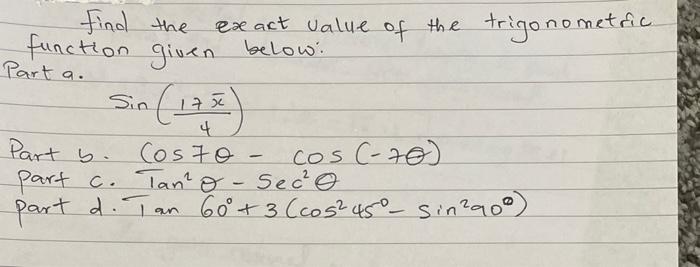 find the exact value of the trigonometric
function given below:
Part a.
Sin (17π/4)
Part b. Cos7θ - cos (-7θ)
part c. Tan² θ - Sec² θ
part d. Tan 60° + 3 (cos² 45° - sin² 90°)